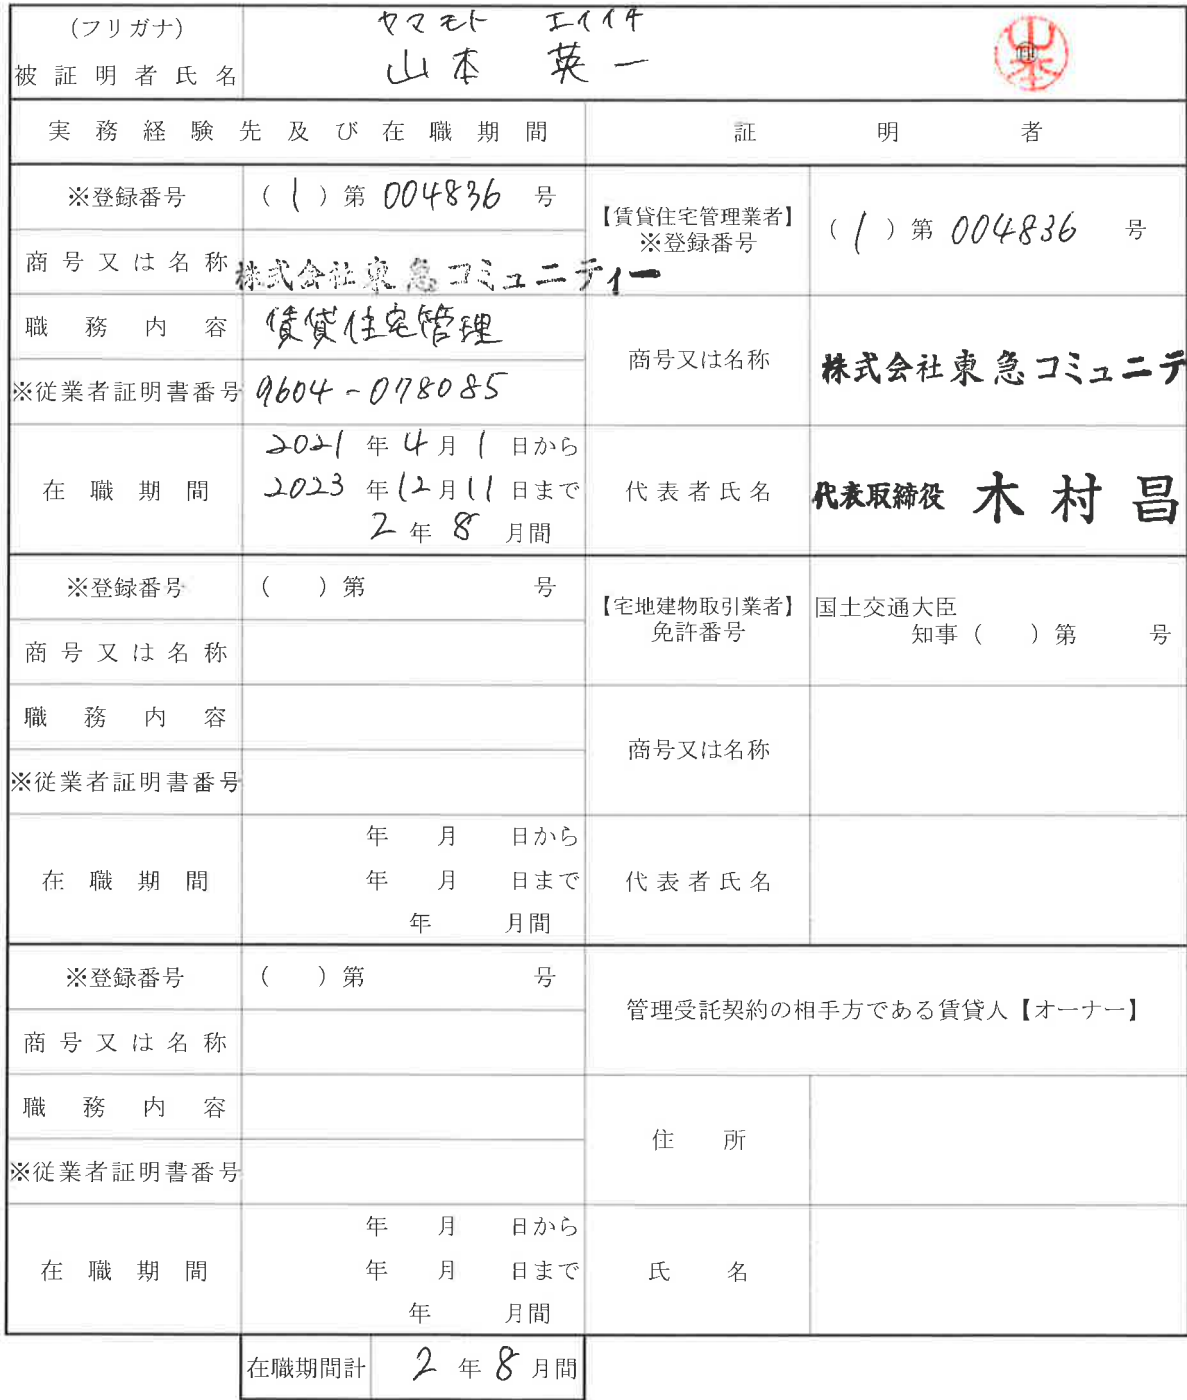 (フリガナ) ヤマモト エイイチ
被証明者氏名 山本 英一 印 山本
実務経験先及び在職期間 証明者
※登録番号 (1)第 004836 号
商号又は名称 株式会社東急コミュニティー
職務内容 賃貸住宅管理
※従業者証明書番号 9604-078085
在職期間 2021年4月1日から
2023年12月11日まで
2年8月間
【賃貸住宅管理業者】
※登録番号 (1)第 004836 号
商号又は名称 株式会社東急コミュニテ
代表者氏名 代表取締役 木村昌
※登録番号 ( )第 号
商号又は名称
職務内容
※従業者証明書番号
在職期間 年 月 日から
年 月 日まで
年 月間
【宅地建物取引業者】 国土交通大臣
免許番号 知事( )第 号
商号又は名称
代表者氏名
※登録番号 ( )第 号
商号又は名称
職務内容
※従業者証明書番号
在職期間 年 月 日から
年 月 日まで
年 月間
管理受託契約の相手方である賃貸人【オーナー】
住所
氏名
在職期間計 2年8月間